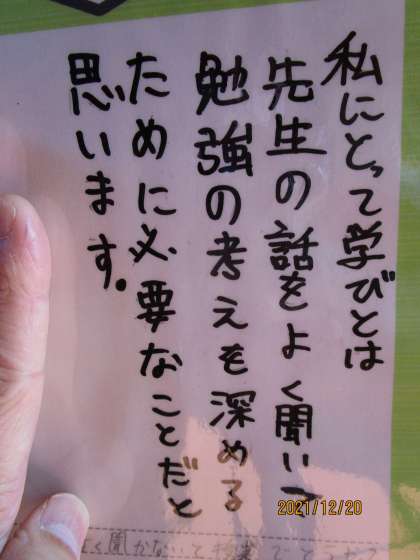 私にとって学びとは
先生の話をよく聞いて
勉強の考えを深める
ために必要なことだと
思います。
2021/12/20